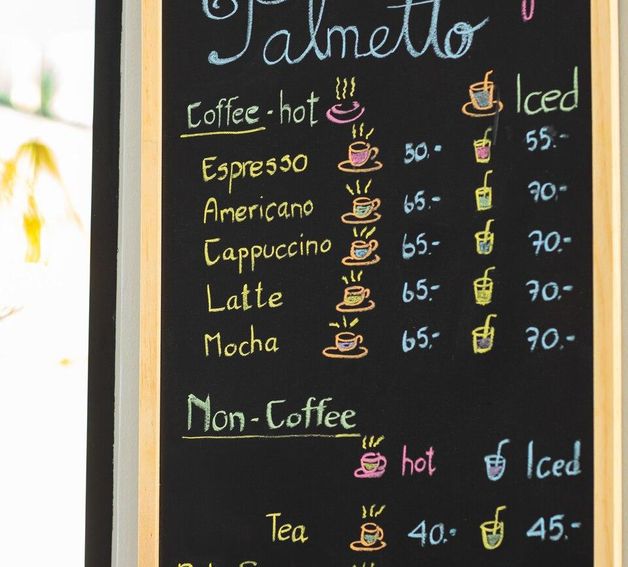 Palmetto
Coffee-hot Iced
Espresso 50.- 55.-
Americano 65.- 70.-
Cappuccino 65.- 70.-
Latte 65.- 70.-
Mocha 65.- 70.-
Non-Coffee
hot Iced
Tea 40.- 45.-